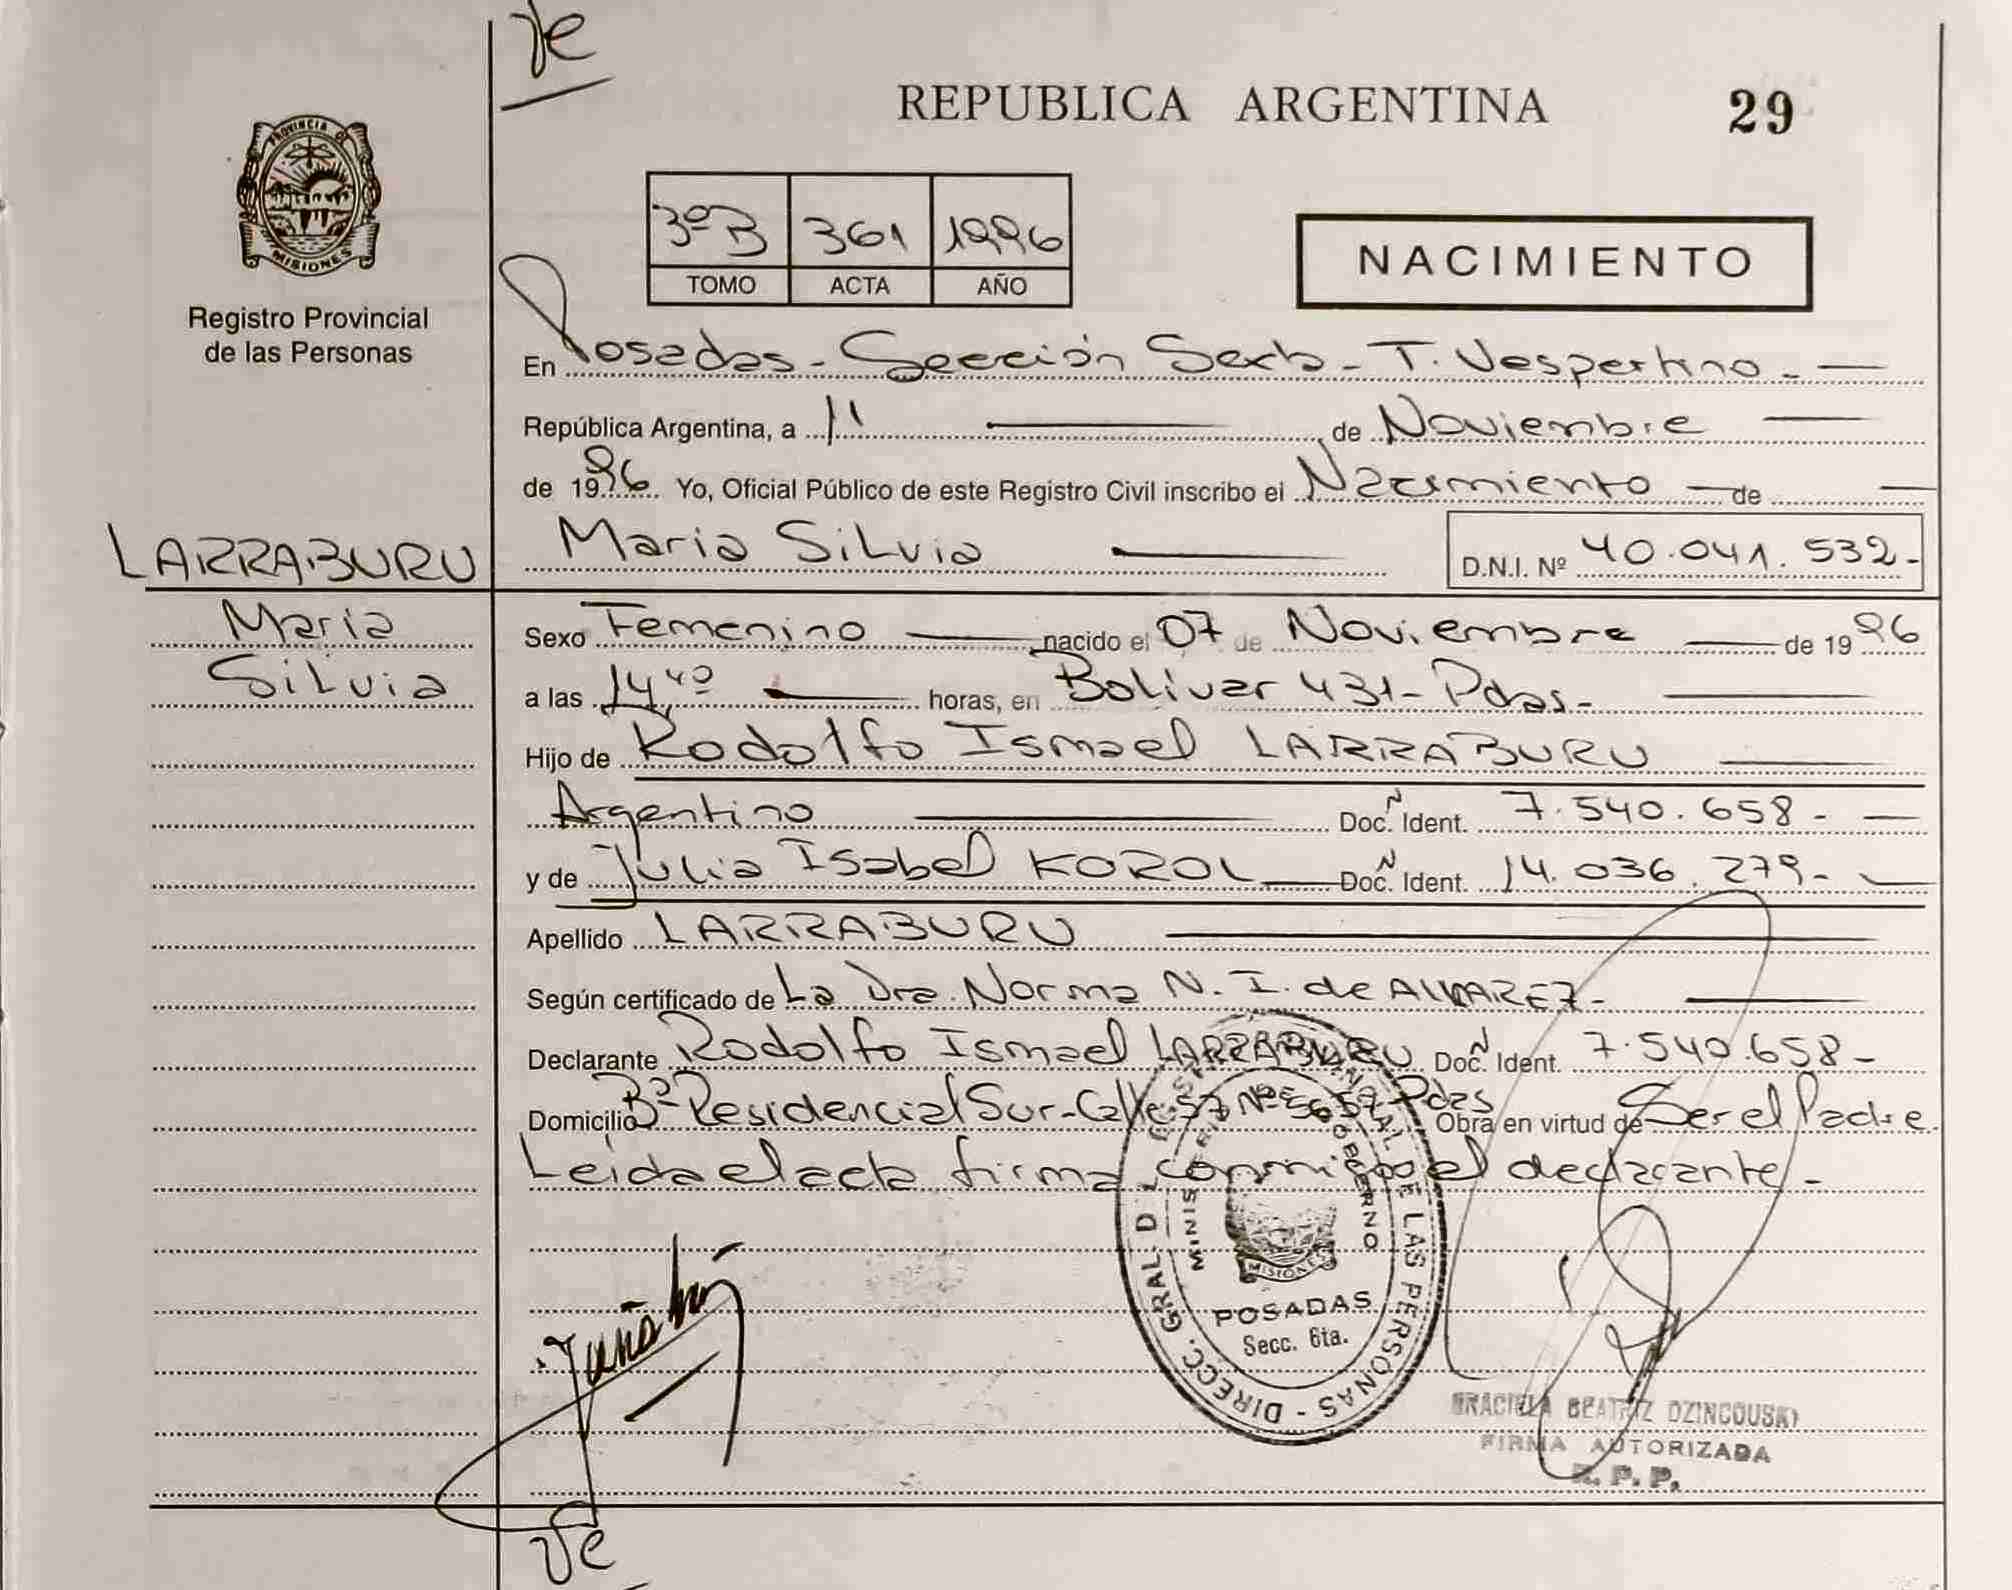 Ve
REPUBLICA ARGENTINA 29
PROVINCIA DE
MISIONES
Registro Provincial
de las Personas
3º B 361 1996
TOMO ACTA AÑO
NACIMIENTO
En Posadas - Sección Sexta - T. Vespertino -
República Argentina, a 11 de Noviembre
de 1996 Yo, Oficial Público de este Registro Civil inscribo el Nacimiento de
LARRABURU Maria Silvia D.N.I. Nº 40.041.532-
Maria
Silvia
Sexo Femenino nacido el 07 de Noviembre de 1996
a las 14,40 horas, en Bolivar 431- Pdas-
Hijo de Rodolfo Ismael LARRABURU
Argentino Doc. N Ident. 7.540.658-
y de Julia Isabel KOROL Doc. N Ident. 14.036.279-
Apellido LARRABURU
Según certificado de La Dra. Norma N. I. de ALVAREZ-
Declarante Rodolfo Ismael LARRABURU Doc. N Ident. 7.540.658-
Domicilio Bº Residencial Sur-Calle 57 Nº 5657 Pdas Obra en virtud de Ser el Padre
Leida el acta firma conmigo el declarante-
DIRECC. GRAL. D PROVINCIAL DE LAS PERSONAS -
MINISTERIO DE GOBIERNO
MISIONES
POSADAS
Secc. 6ta.
GRACIELA BEATRIZ DZINCOUSKI
FIRMA AUTORIZADA
R. P. P.
Ve